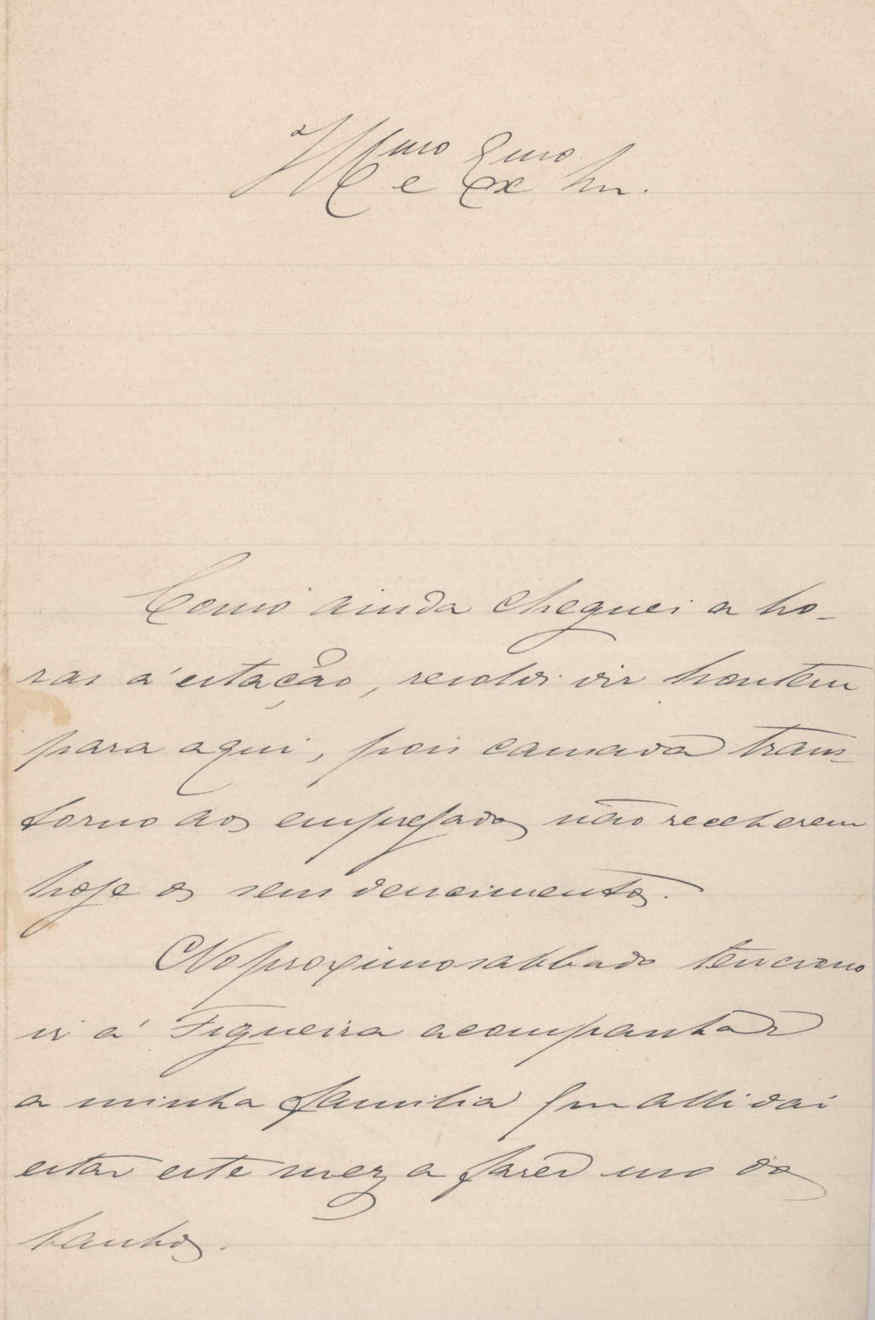 Illmo e Exmo Snr.
Como ainda cheguei a ho-
ras á estação, resolvi vir hontem
para aqui, pois causava trans-
torno aos empregados não receberem
hoje os seus vencimentos.
No proximo sabbado tenciono
ir á Figueira acompanhar
a minha familia que alli vai
estar este mez a fazer uso dos
banhos.